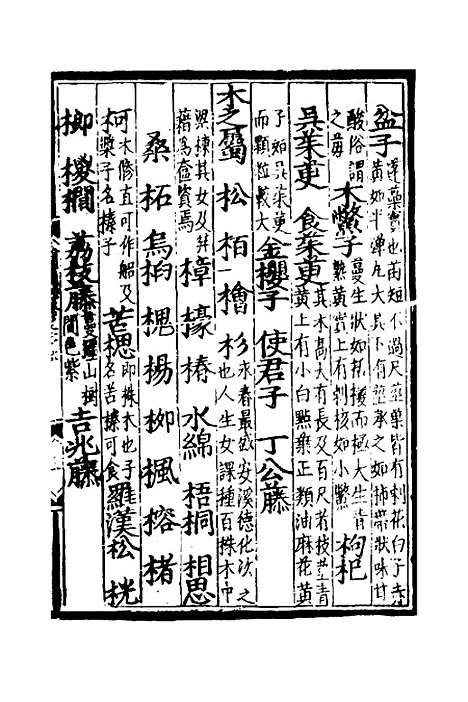 盆子蓬蘽實也苗短不過尺莖葉皆有刺花白子赤黃如半彈丸大其下有蔕承之如柿蔕狀味甘
酸俗謂之苺 木鱉子蔓生狀如栝樓而極大生青熟黃實上有刺核如小鱉 枸杞
吳茱萸 食茱萸其木高大有長及百尺者枝莖青黃上有小白點葉正類油麻花黃
子如吳茱萸而顆粒較大 金櫻子 使君子 丁公藤
木之屬 松 栢 檜 杉永春最然安溪德化次之材也人生女課種百株木中
與棟其女及笄藉爲奩資焉 樟 椽 椿 水綿 梧桐 相思
桑 柘 烏桕 槐 楊 柳 楓 榕 楮
柯木修直可作船及柯槳子名榛子 苦楒即株木也子名苦榛可食 羅漢松 桄
榔 㯶櫚 荔枝藤山樹間色紫 吉兆藤